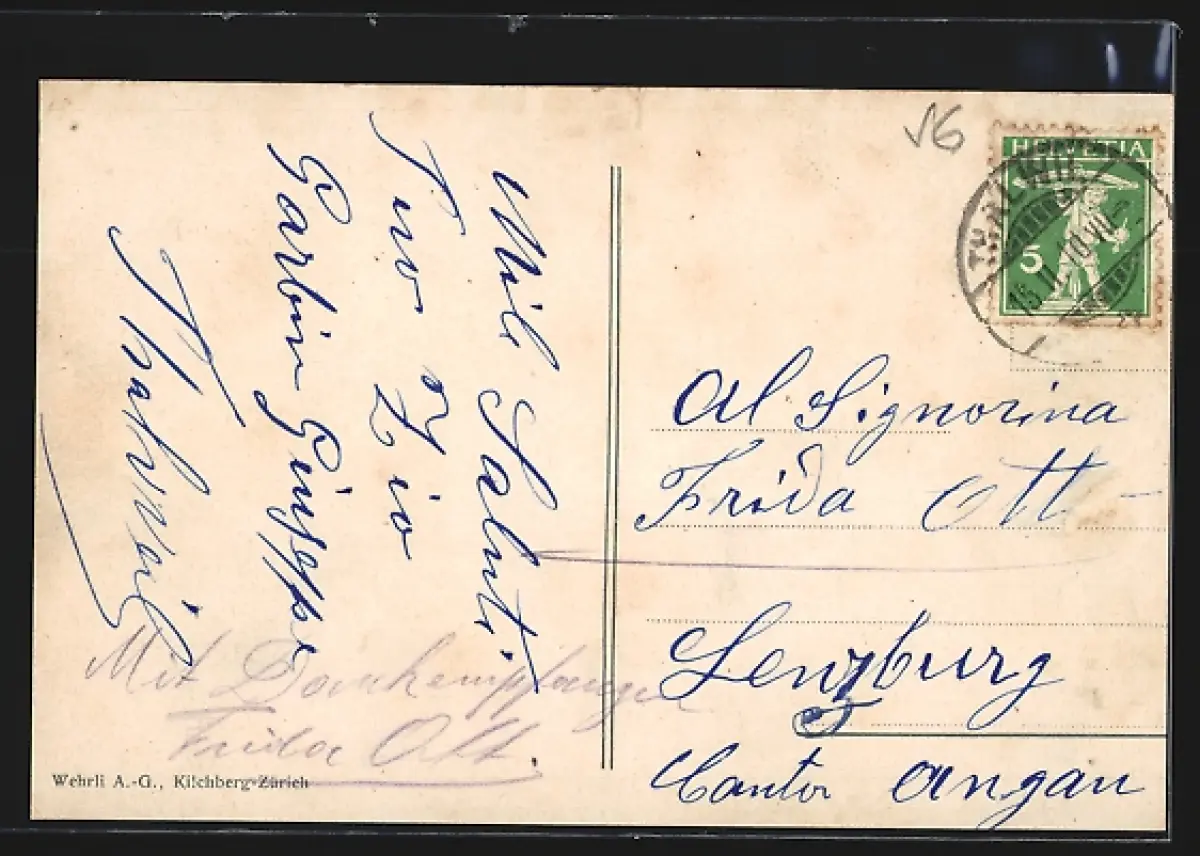 Mil Saluti.
Tuo Zio
Garbin Giuseppe
Thalweil
Mit Dank empfangen
Frida Ott.
Wehrli A.-G., Kilchberg-Zürich
V6
HELVETIA
5
THALWIL
Al Signorina
Frida Ott
Lenzburg
Canton Angau